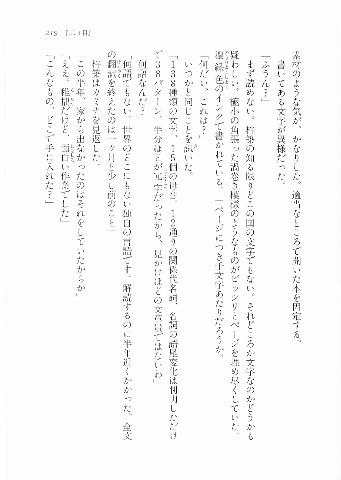 219　［二＋四］
素材のような気が、かなりした。適当なところで開いた本を固定する。
書いてある文字が異様だった。
「ふうん？」
まず読めない。柊築の知る限りどこの国の文字でもない。それどころか文字なのかどうかも
疑わしい。極小の角張った渦巻き模様のようなものがビッシリとページを埋め尽くしていた。
深緑色のインクで書かれている。一ページにつき千文字あたりだろうか。
「何だい、これは？」
いつかと同じことを訊いた。
「138種類の文字、15個の母音、12通りの関係代名詞、名詞の語尾変化は判明しただけ
で38パターン、半分ほどが冗字だったから、見かけほどの文章量ではないわ」
「何語なんだ？」
「何語でもない、世界のどこにもない独自の言語です。解読するのに半年近くかかった。全文
の翻訳を終えたのは一ヶ月と少し前のこと」
柊築はカミナを見返した。
「この半年、家から出なかったのはそれをしていたからか」
「ええ。稚拙だけど、面白い作業でした」
「こんなもの、どこで手に入れた？」